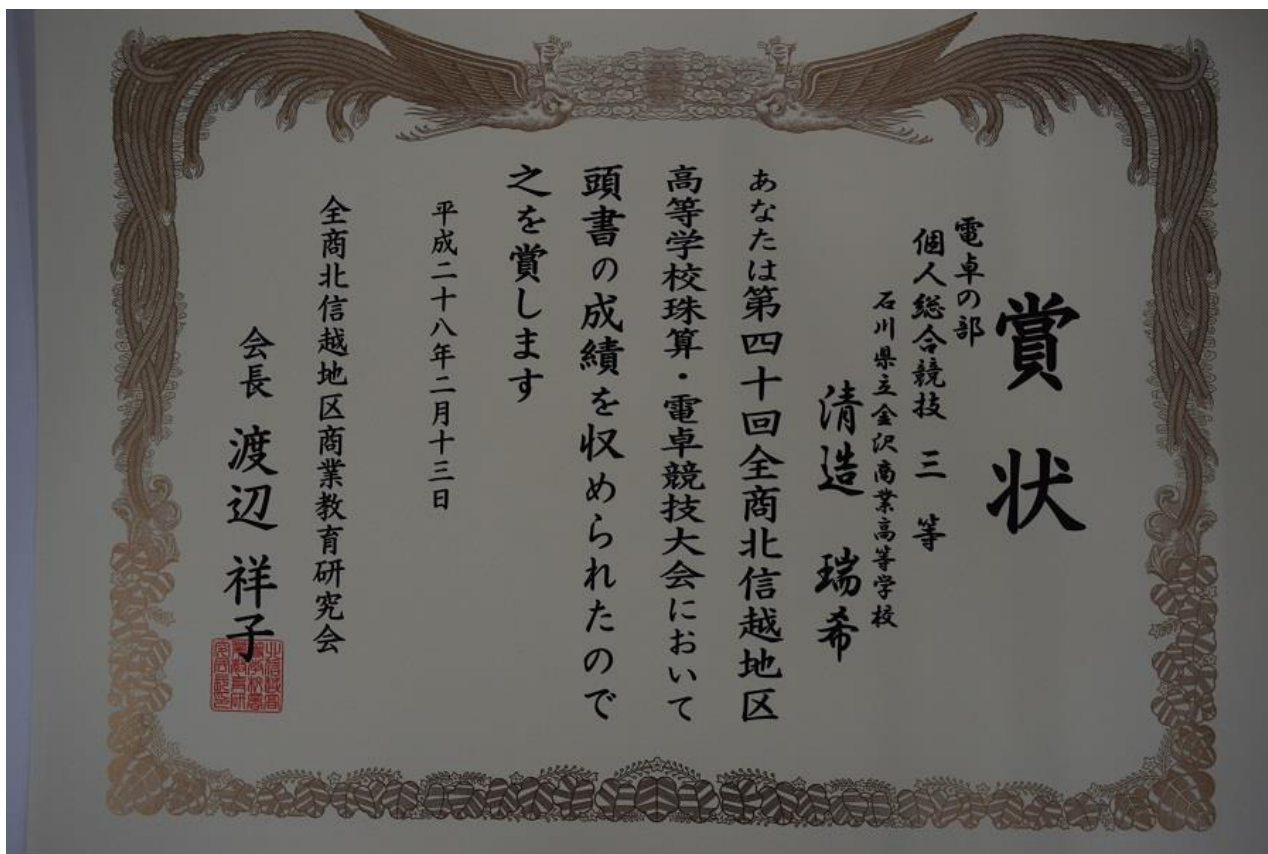 賞状
電卓の部
個人総合競技 三等
石川県立金沢商業高等学校
清造 瑞希
あなたは第四十回全商北信越地区
高等学校珠算・電卓競技大会において
頭書の成績を収められたので
之を賞します
平成二十八年二月十三日
全商北信越地区商業教育研究会
会長 渡辺 祥子